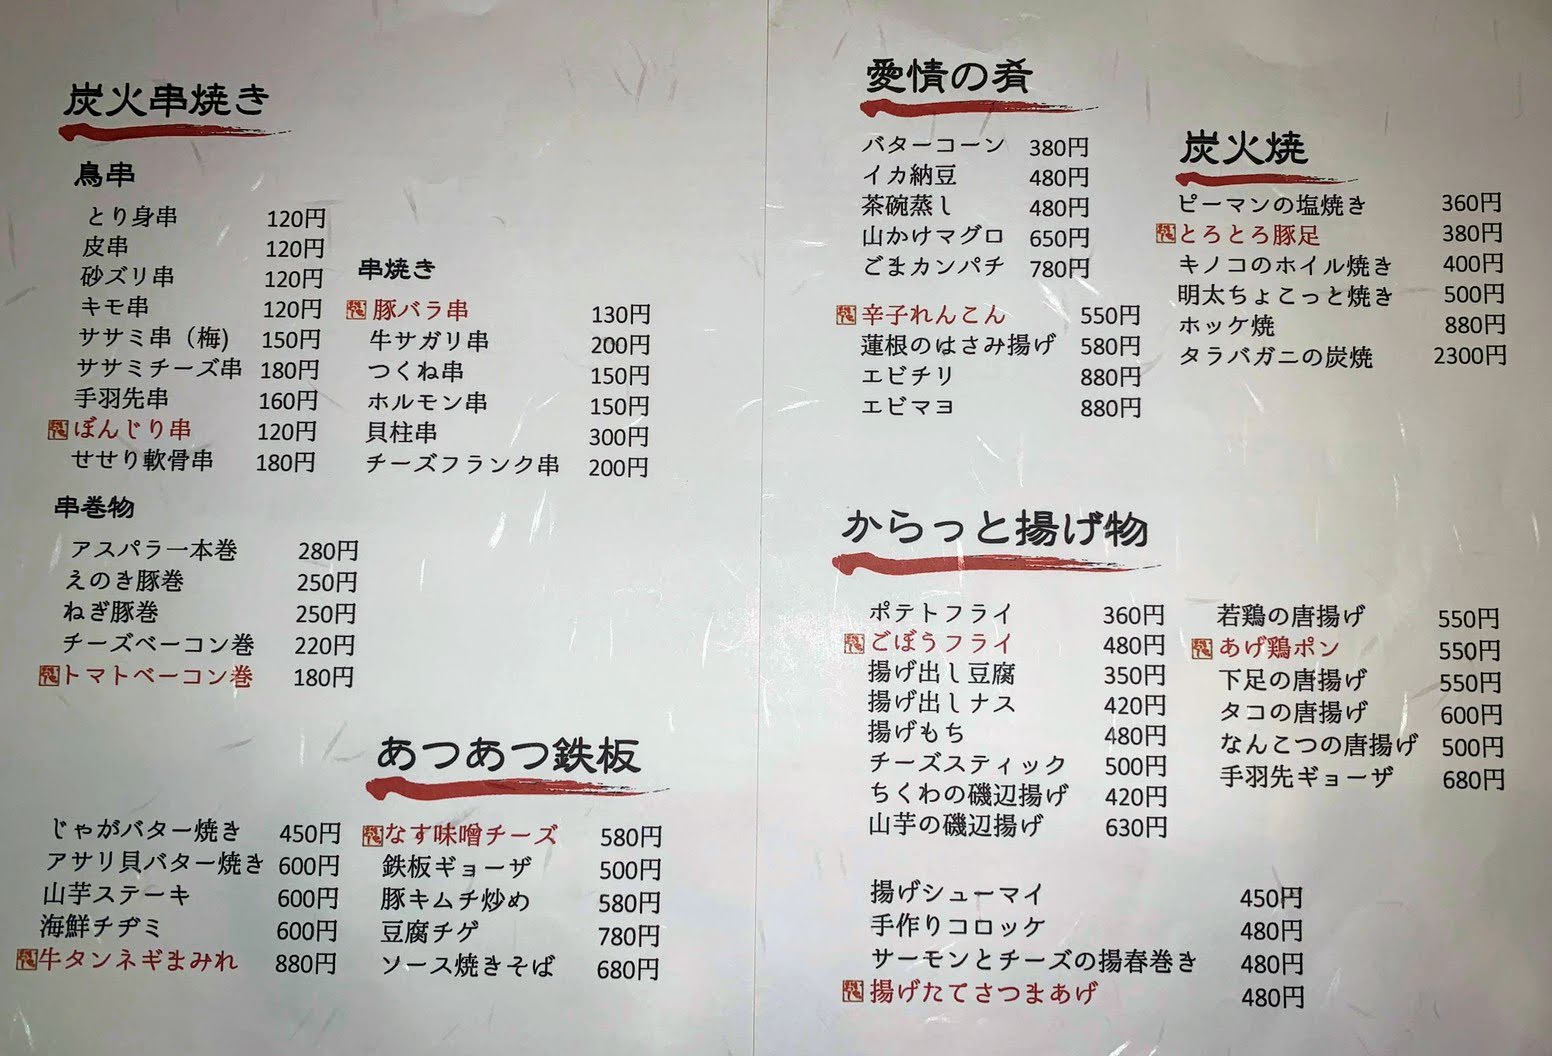 炭火串焼き
鳥串
とり身串 120円
皮串 120円
砂ズリ串 120円
キモ串 120円
ササミ串（梅) 150円
ササミチーズ串 180円
手羽先串 160円
ぼんじり串 120円
せせり軟骨串 180円
串焼き
豚バラ串 130円
牛サガリ串 200円
つくね串 150円
ホルモン串 150円
貝柱串 300円
チーズフランク串 200円
串巻物
アスパラ一本巻 280円
えのき豚巻 250円
ねぎ豚巻 250円
チーズベーコン巻 220円
トマトベーコン巻 180円
あつあつ鉄板
じゃがバター焼き 450円
アサリ貝バター焼き 600円
山芋ステーキ 600円
海鮮チヂミ 600円
牛タンネギまみれ 880円
なす味噌チーズ 580円
鉄板ギョーザ 500円
豚キムチ炒め 580円
豆腐チゲ 780円
ソース焼きそば 680円
愛情の肴
バターコーン 380円
イカ納豆 480円
茶碗蒸し 480円
山かけマグロ 650円
ごまカンパチ 780円
辛子れんこん 550円
蓮根のはさみ揚げ 580円
エビチリ 880円
エビマヨ 880円
炭火焼
ピーマンの塩焼き 360円
とろとろ豚足 380円
キノコのホイル焼き 400円
明太ちょこっと焼き 500円
ホッケ焼 880円
タラバガニの炭焼 2300円
からっと揚げ物
ポテトフライ 360円
ごぼうフライ 480円
揚げ出し豆腐 350円
揚げ出しナス 420円
揚げもち 480円
チーズスティック 500円
ちくわの磯辺揚げ 420円
山芋の磯辺揚げ 630円
若鶏の唐揚げ 550円
あげ鶏ポン 550円
下足の唐揚げ 550円
タコの唐揚げ 600円
なんこつの唐揚げ 500円
手羽先ギョーザ 680円
揚げシューマイ 450円
手作りコロッケ 480円
サーモンとチーズの揚春巻き 480円
揚げたてさつまあげ 480円